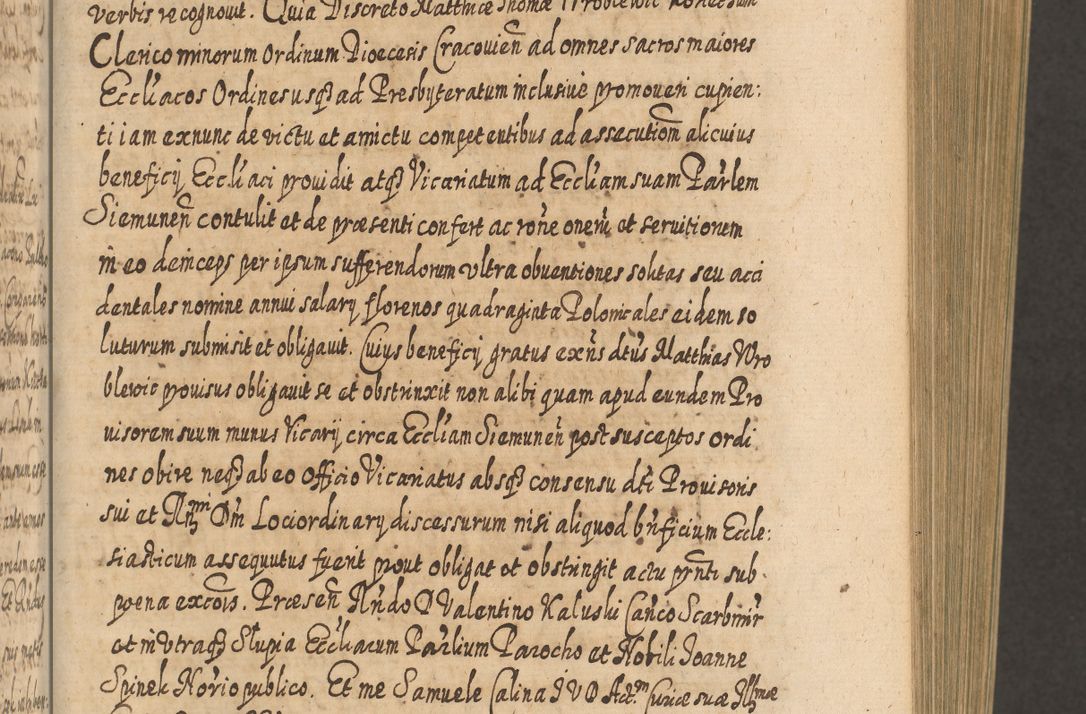 verbis recognovit. Quia Discreto Matthiæ Thomæ Wroblewic
Clerico minorum Ordinum Diœcesis Cracovień ad omnes sacros maiores
Eccl̃iacos Ordines usq̃ ad Presbyteratum inclusivè promoveri cupien:
ti iam exnunc de victu et amictu competentibus ad assecutiom̃ alicuius
beneficij Eccl̃iaci providit atq̃ Vicariatum ad Eccl̃iam suam Par̃lem
Siemuneñ contulit et de præsenti confert ac rõne onerũ et servitiorum
in eo deinceps per ipsum sufferendorum ultra obventiones solitas seu acci
dentales nomine annui salarij florenos quadraginta Polonicales eidem so
luturum submisit et obligavit. Cuius beneficij gratus exñs dtũs Matthias Wro
blewic provisus obligavit se et obstrinxit non alibi quam apud eundem Pro
visorem suum munus Vicarij circa Eccl̃iam Siemuneñ post susceptos ordi
nes obire neq̃ ab eo Officio Vicariatus absq̃ consensu dti Provisoris
sui et Dm̃ Lociordinarij discessurum nisi aliquod bñficium Eccle:
siasticum assequutus fuerit prout obligat et obstringit actu pr̃nti sub
pœna excõis. Præseñ Ando D Valentino Kałuski Canco Scarbmir̃
et in utraq̃ Słupia Eccl̃iarum Par̃lium Parocho et Nobili Joanne
Spinek Norio publico. Et me Samuele Calina J U D Act.m Curiæ suæ Illmæ